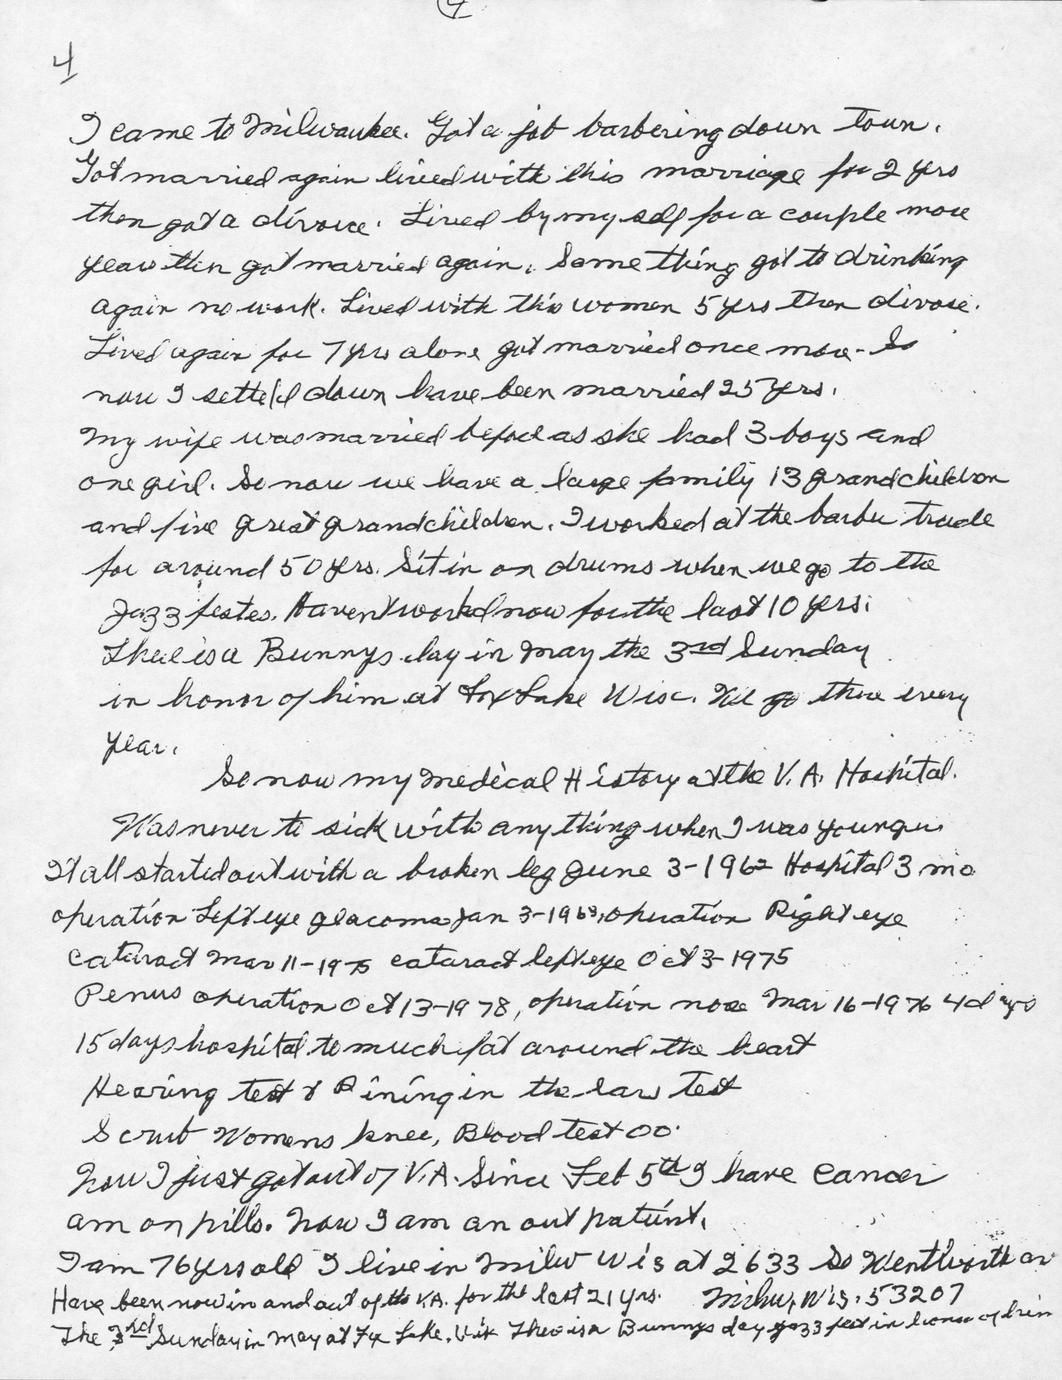 4
4
I came to Milwaukee. Got a job barbering down town.
Got married again lived with this marriage for 2 yrs
then got a divorce. Lived by my self for a couple more
years then got married again. Same thing got to drinking
again no work. Lived with this women 5 yrs then divose.
Lived again for 7 yrs alone got married once more. So
now I setteld down have been married 25 yrs.
My wife was married before as she had 3 boys and
one girl. So now we have a large family 13 grandchildren
and five great grandchildren. I worked at the barber trade
for around 50 yrs. Sit in on drums when we go to the
Jazz festes. Havent worked now for the last 10 yrs.
There is a Bunnys day in May the 3rd Sunday
in honor of him at Fox Lake Wisc. We go there every
year.
So now my Medical History at the V.A. Hospital.
Was never to sick with any thing when I was younger
It all started out with a broken leg June 3-1962 Hospital 3 mo
operation Left eye glacoma Jan 3-1969, operation Right eye
cataract Mar 11-1975 cataract left eye Oct 3-1975
Penus operation Oct 13-1978, operation nose Mar 16-1976 4 days
15 days hospital to much fat around the heart
Hearing test & Rining in the ear test
Scrub Womens knee, Blood test OO.
Now I just got out of V.A. Since Feb 5th I have cancer
am on pills. Now I am an out patient.
I am 76 yrs old I live in Milw Wis at 2633 So Wentworth av
Have been now in and out of the V.A. for the last 21 yrs. Milw, Wis. 53207
The 3rd Sunday in May at Fx Lake, Wis Ther is a Bunnys day Jazz fest in honor of him